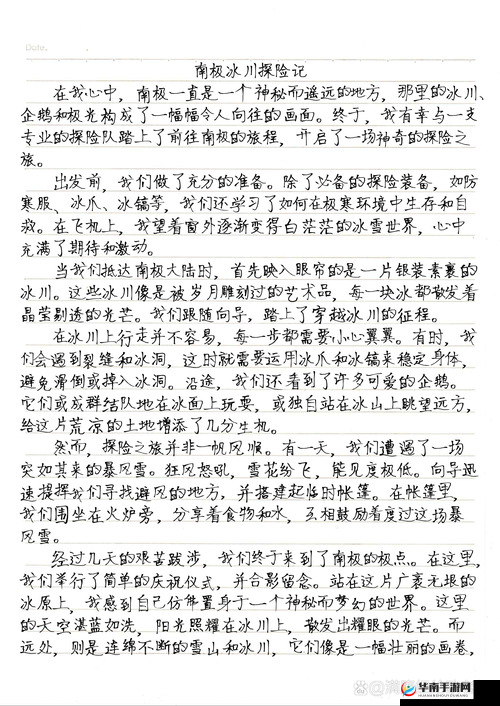 Date.
南极冰川探险记
在我心中，南极一直是一个神秘而遥远的地方，那里的冰川、
企鹅和极光构成了一幅幅令人向往的画面。终于，我有幸与一支
专业的探险队踏上了前往南极的旅程，开启了一场神奇的探险之
旅。
出发前，我们做了充分的准备。除了必备的探险装备，如防
寒服、冰爪、冰镐等，我们还学习了如何在极寒环境中生存和自
救。在飞机上，我望着窗外逐渐变得白茫茫的冰雪世界，心中
充满了期待和激动。
当我们抵达南极大陆时，首先映入眼帘的是一片银装素裹的
冰川。这些冰川像是被岁月雕刻过的艺术品，每一块冰都散发着
晶莹剔透的光芒。我们跟随向导，踏上了穿越冰川的征程。
在冰川上行走并不容易，每一步都需要小心翼翼。有时，我
们会遇到裂缝和冰洞，这时就需要运用冰爪和冰镐来稳定身体，
避免滑倒或掉入冰洞。沿途，我们还看到了许多可爱的企鹅。
它们或成群结队地在冰面上玩耍，或独自站在冰山上眺望远方，
给这片荒凉的土地增添了几分生机。
然而，探险之旅并非一帆风顺。有一天，我们遭遇了一场
突如其来的暴风雪。狂风怒吼，雪花纷飞，能见度极低。向导迅
速提醒我们寻找避风的地方，并搭建起临时帐篷。在帐篷里，
我们围坐在火炉旁，分享着食物和水，互相鼓励着度过这场暴
风雪。
经过几天的艰苦跋涉，我们终于来到了南极的极点。在这里，
我们举行了简单的庆祝仪式，并合影留念。站在这片广袤无垠的
冰原上，我感到自己仿佛置身于一个神秘而梦幻的世界。这里
的天空湛蓝如洗，阳光照耀在冰川上，散发出耀眼的光芒。而
远处，则是连绵不断的雪山和冰川，它们像是一幅壮丽的画卷，
华南手游网